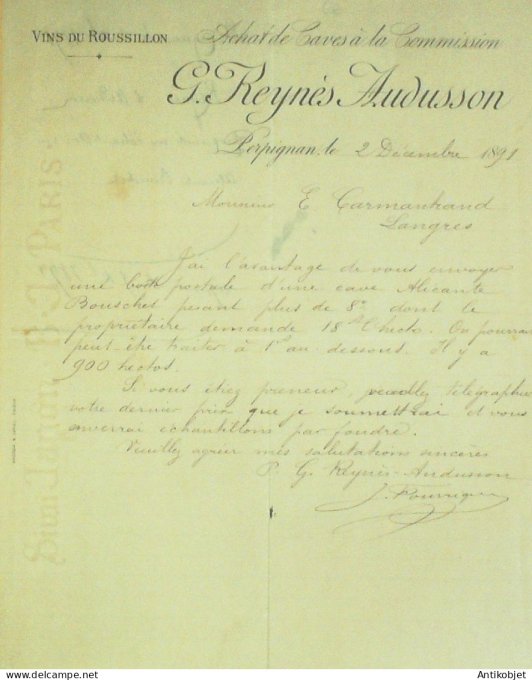 VINS DU ROUSSILLON
Achat de Caves à la Commission
G. Reynès Audusson
Perpignan, le 2 Décembre 1891
Monsieur E. Carmantrand
Langres
J'ai l'avantage de vous envoyer
une boîte postale d'une cave Alicante
Bouschet pesant plus de 8° dont le
propriétaire demande 18 l'hecto. On pourrait
peut-être traiter à 1f au-dessous. Il y a
900 hectos.
Si vous étiez preneur, veuillez télégraphier
votre dernier prix que je soumettrai et vous
enverrai échantillons par foudre.
Veuillez agréer mes salutations sincères
P. G. Reynès-Audusson
SUM LANON B. J. PARIS
www.delcampe.net
Antikobjet